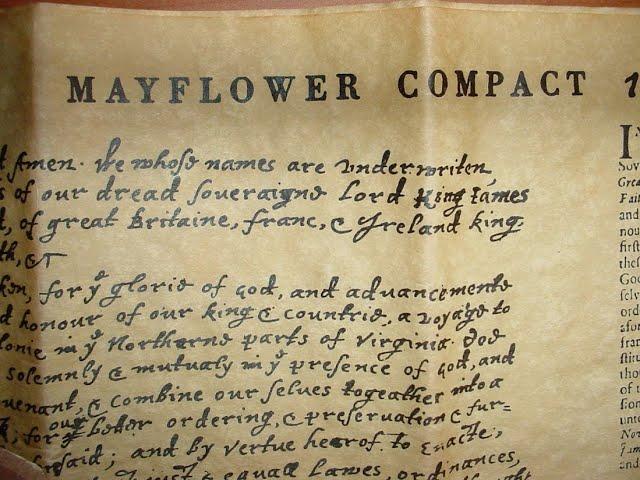 MAYFLOWER COMPACT 1
Amen. We whose names are underwriten,
s of our dread soveraigne Lord King James
, of great Britaine, franc, & Ireland king,
th, &c
ken, for yᵉ glorie of god, and advancemente
d honour of our king & countrie, a voyage to
lonie in yᵉ Northerne parts of Virginia. doe
solemnly & mutualy in yᵉ presence of god, and
venant, & combine our selves togeather into a
for our better ordering, & preservation & fur=
said; and by vertue hearof to Enacte,
just & equall lawes, ordinances,
I
Sov
Grea
Fait
and
nou
first
thes
God
selv
ord
afor
fran
stit
thou
of t
unto
Nov
Jam
and